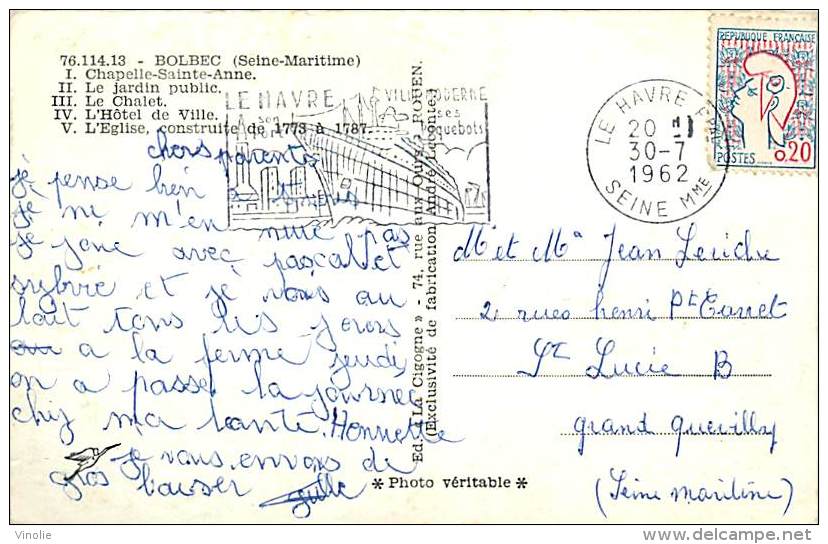 76.114.13 - BOLBEC (Seine-Maritime)
I. Chapelle-Sainte-Anne.
II. Le jardin public.
III. Le Chalet.
IV. L'Hôtel de Ville.
V. L'Eglise, construite de 1773 à 1787.
LE HAVRE VILLE MODERNE
son port ses paquebots
chers parents
je pense bien a tous
je ni m'en nuie pas
je joue avec pascal et
sylvie et je vous au
lait tous lis jours
a la ferme jeudi
on a passe la journee
chez ma tante Honnette
je vous envoas de
gros baiser
Ed. « La Cigogne » - 74, rue aux Ours - ROUEN.
(Exclusivité de fabrication André Lecomte)
* Photo véritable *
REPUBLIQUE FRANÇAISE
POSTES 0,20
LE HAVRE
20
30-7
1962
SEINE Mme
Mr et Me Jean
2 rues henri
Ste Lucie B
grand quevilly
(Seine maritime)
Vinolie
delcampe.net